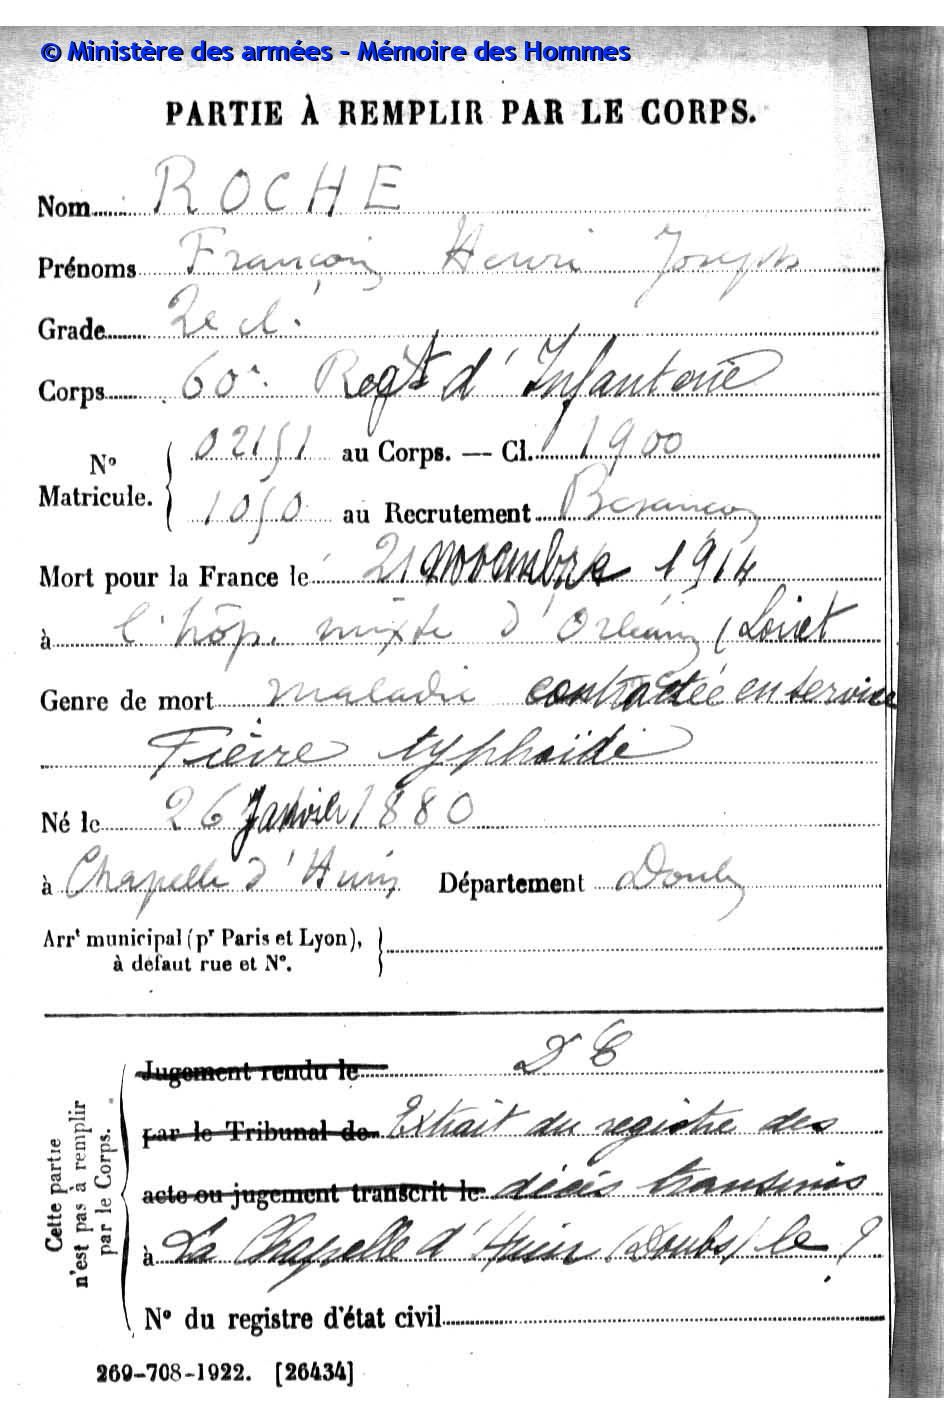 © Ministère des armées - Mémoire des Hommes
PARTIE À REMPLIR PAR LE CORPS.
Nom ROCHE
Prénoms François Henri Joseph
Grade 2e cl.
Corps 60e Regt d'Infanterie
N° Matricule. 02151 au Corps. — Cl. 1900
1050 au Recrutement Besançon
Mort pour la France le 21 novembre 1914
à l'hôp. mixte d'Orléans (Loiret
Genre de mort maladie contractée en service
Fièvre typhoïde
Né le 26 Janvier 1880
à Chapelle d'Huin Département Doubs
Arrt municipal (pr Paris et Lyon),
à défaut rue et N°.
Cette partie n'est pas à remplir par le Corps.
Jugement rendu le D C
par le Tribunal de Extrait du registre des
acte ou jugement transcrit le décès transmis
à La Chapelle d'Huin (Doubs) le ?
N° du registre d'état civil
269-708-1922. [26434]